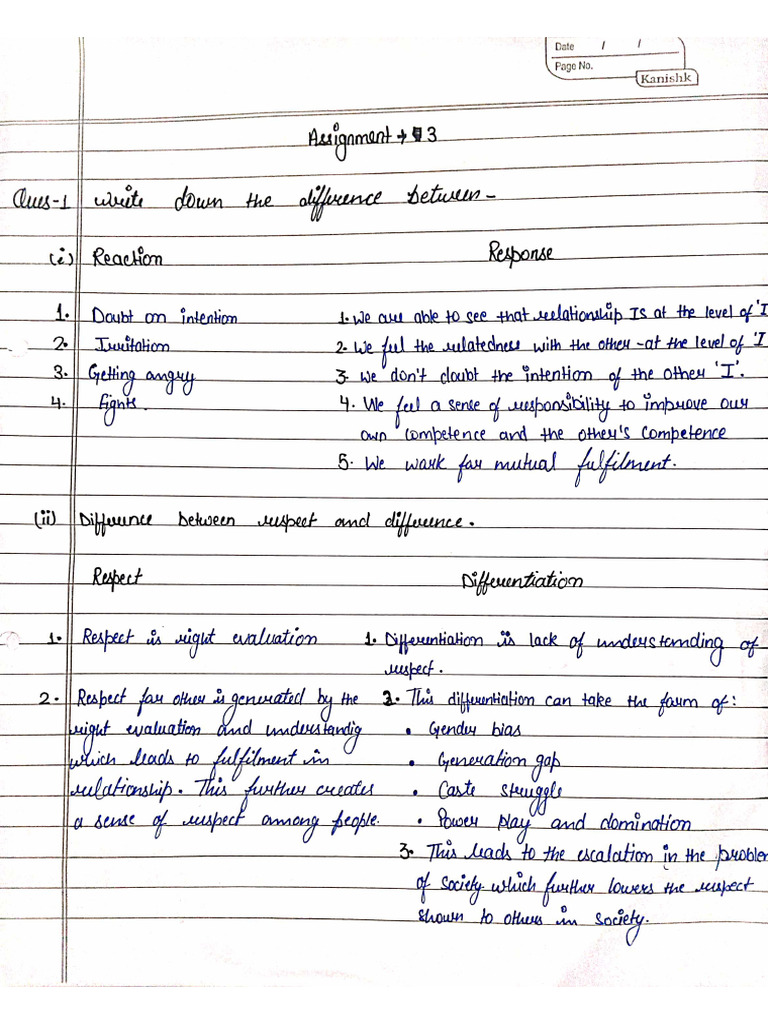 Date / /
Page No.
Kanishk
Assignment → 3
Ques-1 Write down the difference between -
(i) Reaction Response
1. Doubt on intention 1. We are able to see that relationship IS at the level of 'I
2. Irritation 2. We feel the relatedness with the other - at the level of 'I
3. Getting angry 3. We don't doubt the intention of the other 'I'.
4. Fights. 4. We feel a sense of responsibility to improve our
own competence and the other's competence
5. We work for mutual fulfilment.
(ii) Difference between respect and difference.
Respect Differentiation
1. Respect is right evaluation 1. Differentiation is lack of understanding of
respect.
2. Respect for other is generated by the 2. This differentiation can take the form of:
right evaluation and understandig • Gender bias
which leads to fulfilment in • Generation gap
relationship. This further creates • Caste struggle
a sense of respect among people. • Power play and domination
3. This leads to the escalation in the problem
of society which further lowers the respect
shown to others in society.